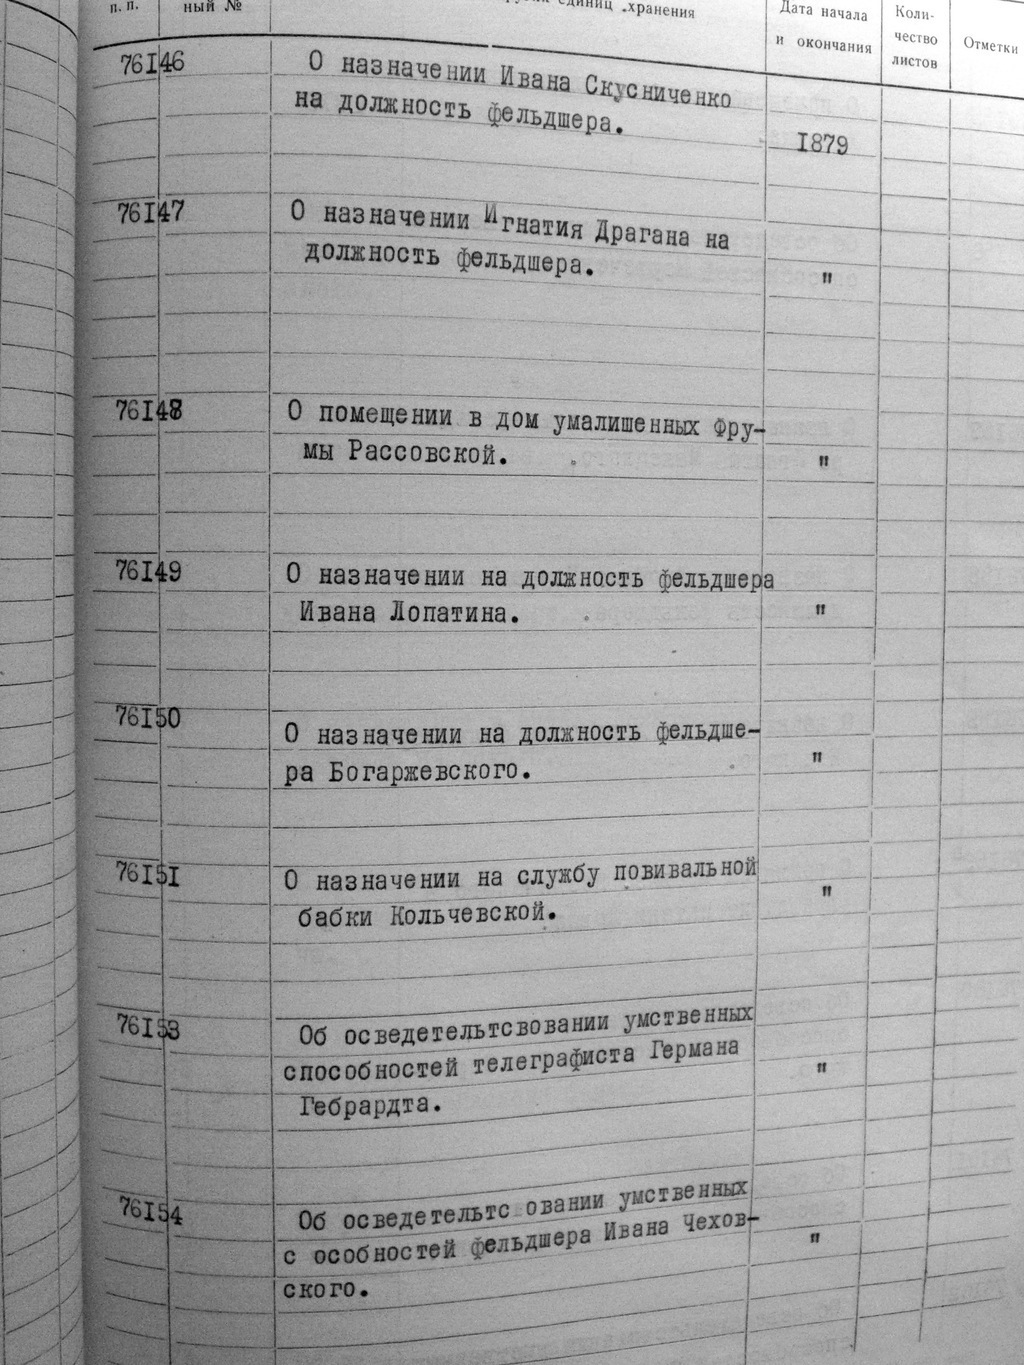 п. п.
ный №
единиц хранения
Дата начала
и окончания
Коли-
чество
листов
Отметки
76I46
О назначении Ивана Скусниченко
на должность фельдшера.
I879
76I47
О назначении Игнатия Драгана на
должность фельдшера.
"
76I48
О помещении в дом умалишенных Фру-
мы Рассовской.
"
76I49
О назначении на должность фельдшера
Ивана Лопатина.
"
76I50
О назначении на должность фельдше-
ра Богаржевского.
"
76I5I
О назначении на службу повивальной
бабки Кольчевской.
"
76I53
Об осведетельтсвовании умственных
способностей телеграфиста Германа
Гебрардта.
"
76I54
Об осведетельтс овании умственных
с особностей фельдшера Ивана Чехов-
ского.
"